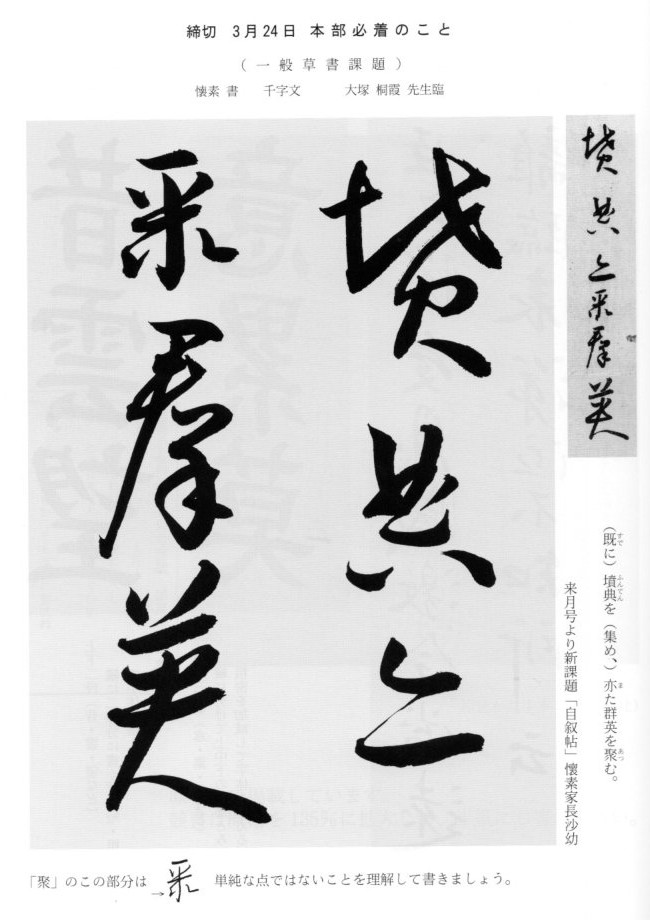 締切 3月24日 本部必着のこと
（一般草書課題）
懐素 書 千字文 大塚 桐霞 先生臨
墳典亦聚群英
墳典亦
聚群英
（既に）墳典を（集め、）亦た群英を聚む。
すで ふんでん ま あつ
来月号より新課題「自叙帖」懐素家長沙幼
「聚」のこの部分は →聚 単純な点ではないことを理解して書きましょう。